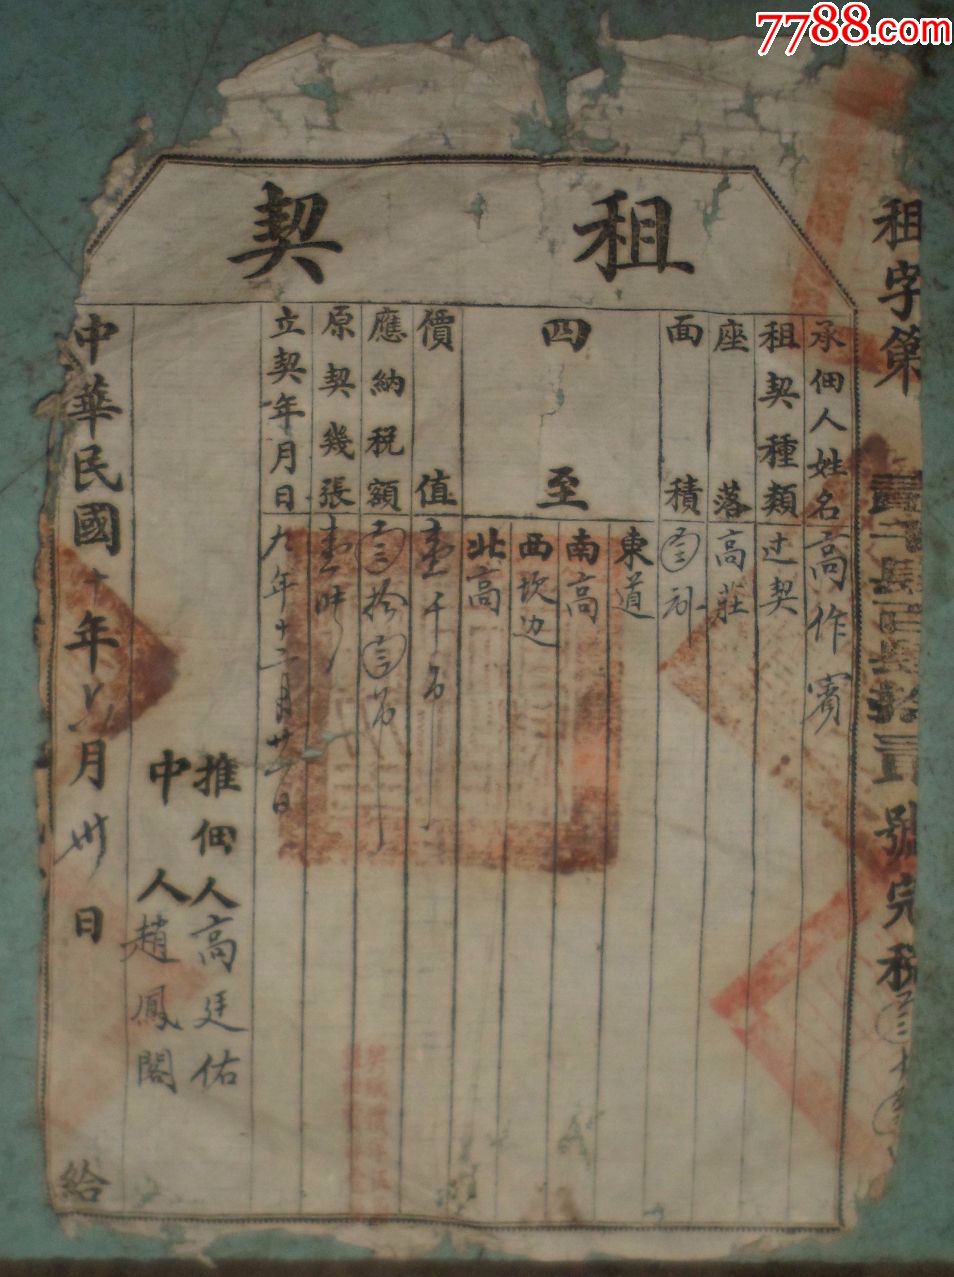 7788.com
租契
租字第
號完稅
承佃人姓名高作賓
租契種類过契
座落高莊
面積
四至
東道
南高
西坎边
北高
價值壹千
應納稅額
原契幾張壹
立契年月日九年十二月廿日
推佃人高廷佑
中人趙鳳閣
中華民國十年八月卅日
給